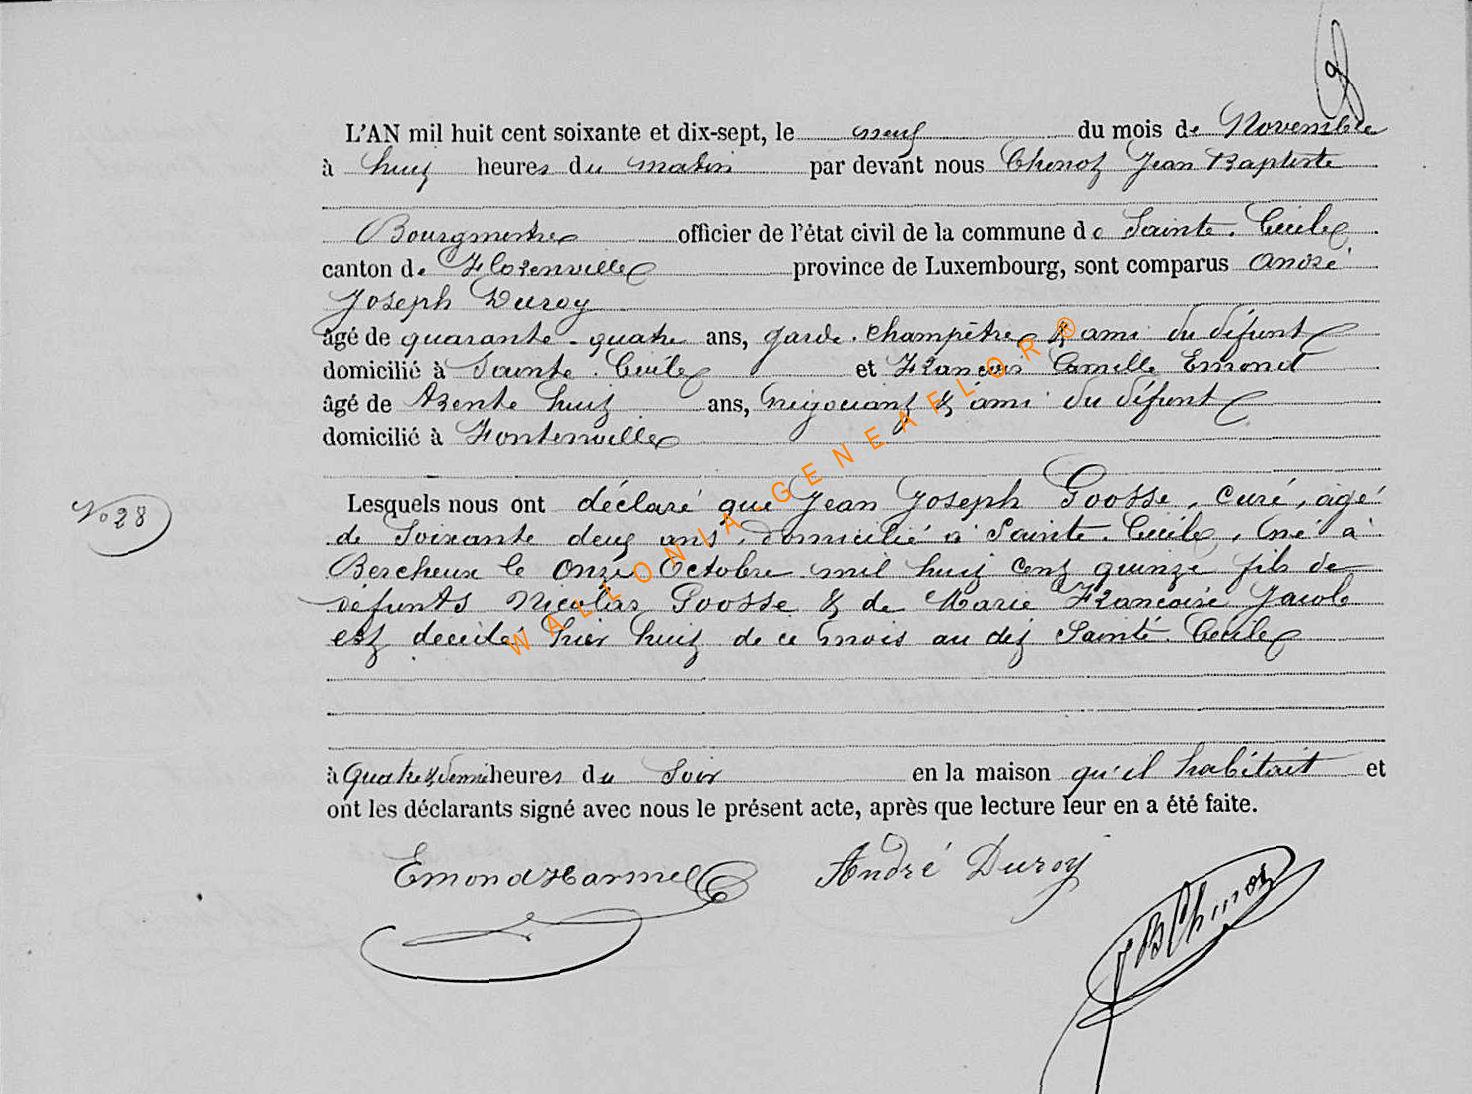 L'AN mil huit cent soixante et dix-sept, le neuf du mois de Novembre
à huit heures du matin par devant nous Chenot Jean Baptiste
Bourgmestre officier de l'état civil de la commune de Sainte. Cécile
canton de Florenville province de Luxembourg, sont comparus André
Joseph Duroy
âgé de quarante-quatre ans, garde-champêtre & ami du défunt
domicilié à Sainte. Cécile et François Camille Emond
âgé de trente huit ans, négociant & ami du défunt
domicilié à Fontenoille
Lesquels nous ont déclaré que Jean Joseph Goosse, curé, âgé
No 28
de Soixante deux ans, domicilié à Sainte. Cécile, né à
Bercheux le onze Octobre mil huit cent quinze fils de
defunts Nicolas Goosse & de Marie Françoise Jacob
est decidé hier huit de ce mois au dit Sainte. Cécile
à quatre & demi heures du Soir en la maison qu'il habitait et
ont les déclarants signé avec nous le présent acte, après que lecture leur en a été faite.
Emond Harmel André Duroy
JB Chenot
WALLONIA GENEAFLOR ®